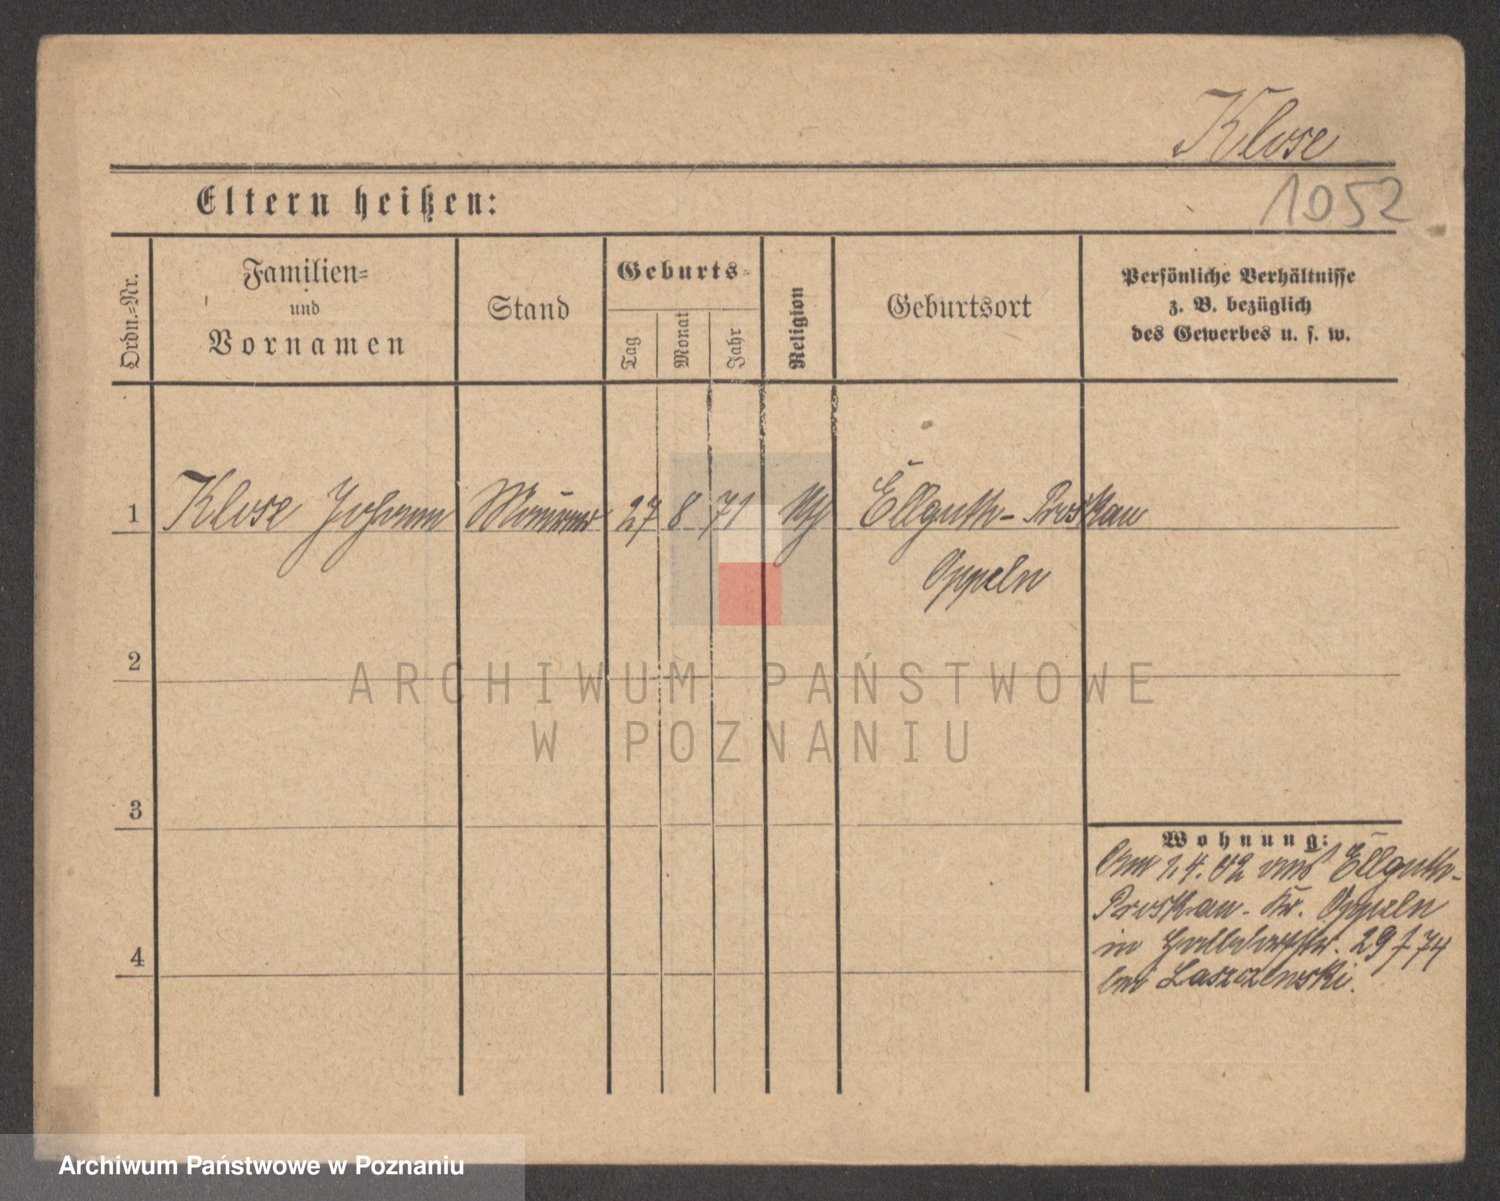 Klose
1052
Eltern heißen:
Ordn.-Nr.
Familien-
und
Vornamen
Stand
Geburts-
Tag
Monat
Jahr
Religion
Geburtsort
Persönliche Verhältnisse
z. B. bezüglich
des Gewerbes u. s. w.
1 Klose Johann Maurer 27 8 71 Ellguth-Proskau
Oppeln
2
ARCHIWUM PAŃSTWOWE
W POZNANIU
3
Wohnung:
1.4.02 aus Ellguth-
Proskau - Kr. Oppeln
in 29 74
4
bei Laszczewski.
Archiwum Państwowe w Poznaniu